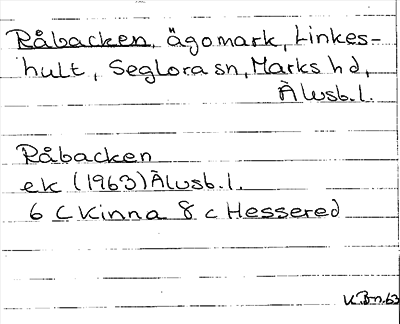 Råbacken, ägomark, Linkes-
hult, Seglora sn, Marks hd,
Älvsb. l.
Råbacken
ek (1963) Älvsb. l.
6 C Kinna 8 c Hessered